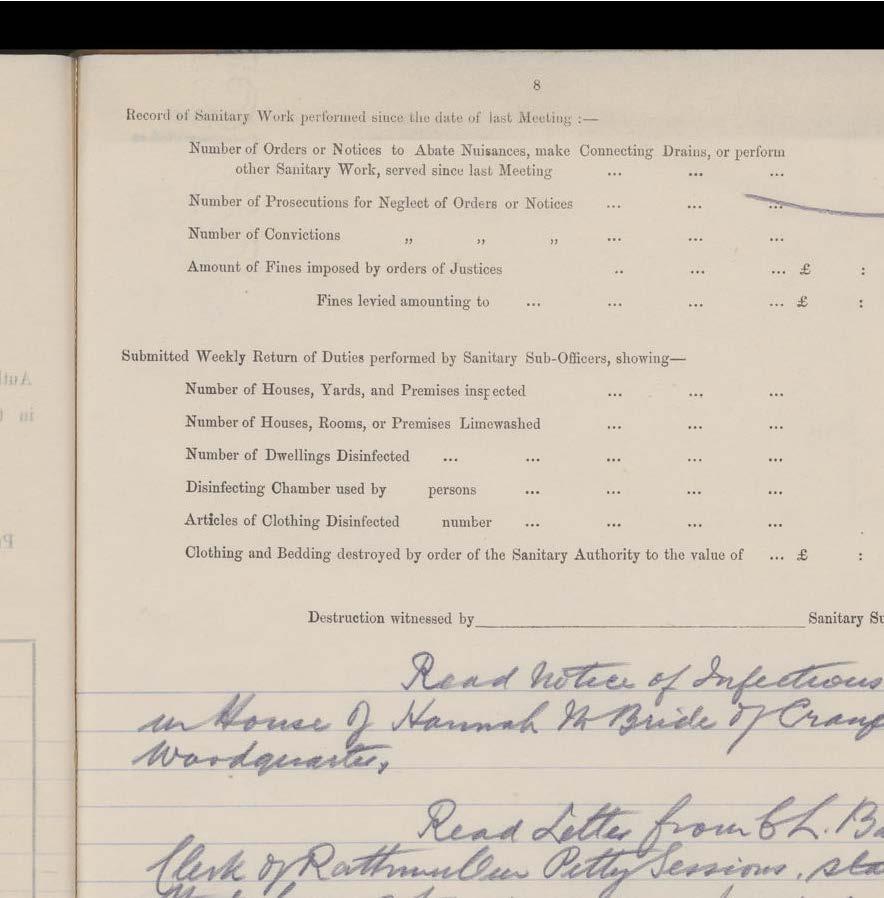 8
Record of Sanitary Work performed since the date of last Meeting :—
Number of Orders or Notices to Abate Nuisances, make Connecting Drains, or perform
other Sanitary Work, served since last Meeting ... ... ...
Number of Prosecutions for Neglect of Orders or Notices ... ... ...
Number of Convictions „ „ „ ... ... ...
Amount of Fines imposed by orders of Justices .. ... ... £ :
Fines levied amounting to ... ... ... ... £ :
Submitted Weekly Return of Duties performed by Sanitary Sub-Officers, showing—
Number of Houses, Yards, and Premises inspected ... ... ...
Number of Houses, Rooms, or Premises Limewashed ... ... ...
Number of Dwellings Disinfected ... ... ... ... ...
Disinfecting Chamber used by persons ... ... ... ...
Articles of Clothing Disinfected number ... ... ... ...
Clothing and Bedding destroyed by order of the Sanitary Authority to the value of ... £ :
Destruction witnessed by Sanitary Su
Read Notice of Infectious
in House of Hannah McBride of Cranf
Woodquarter,
Read Letter from C L. Ba
Clerk of Rathmullen Petty Sessions, sta